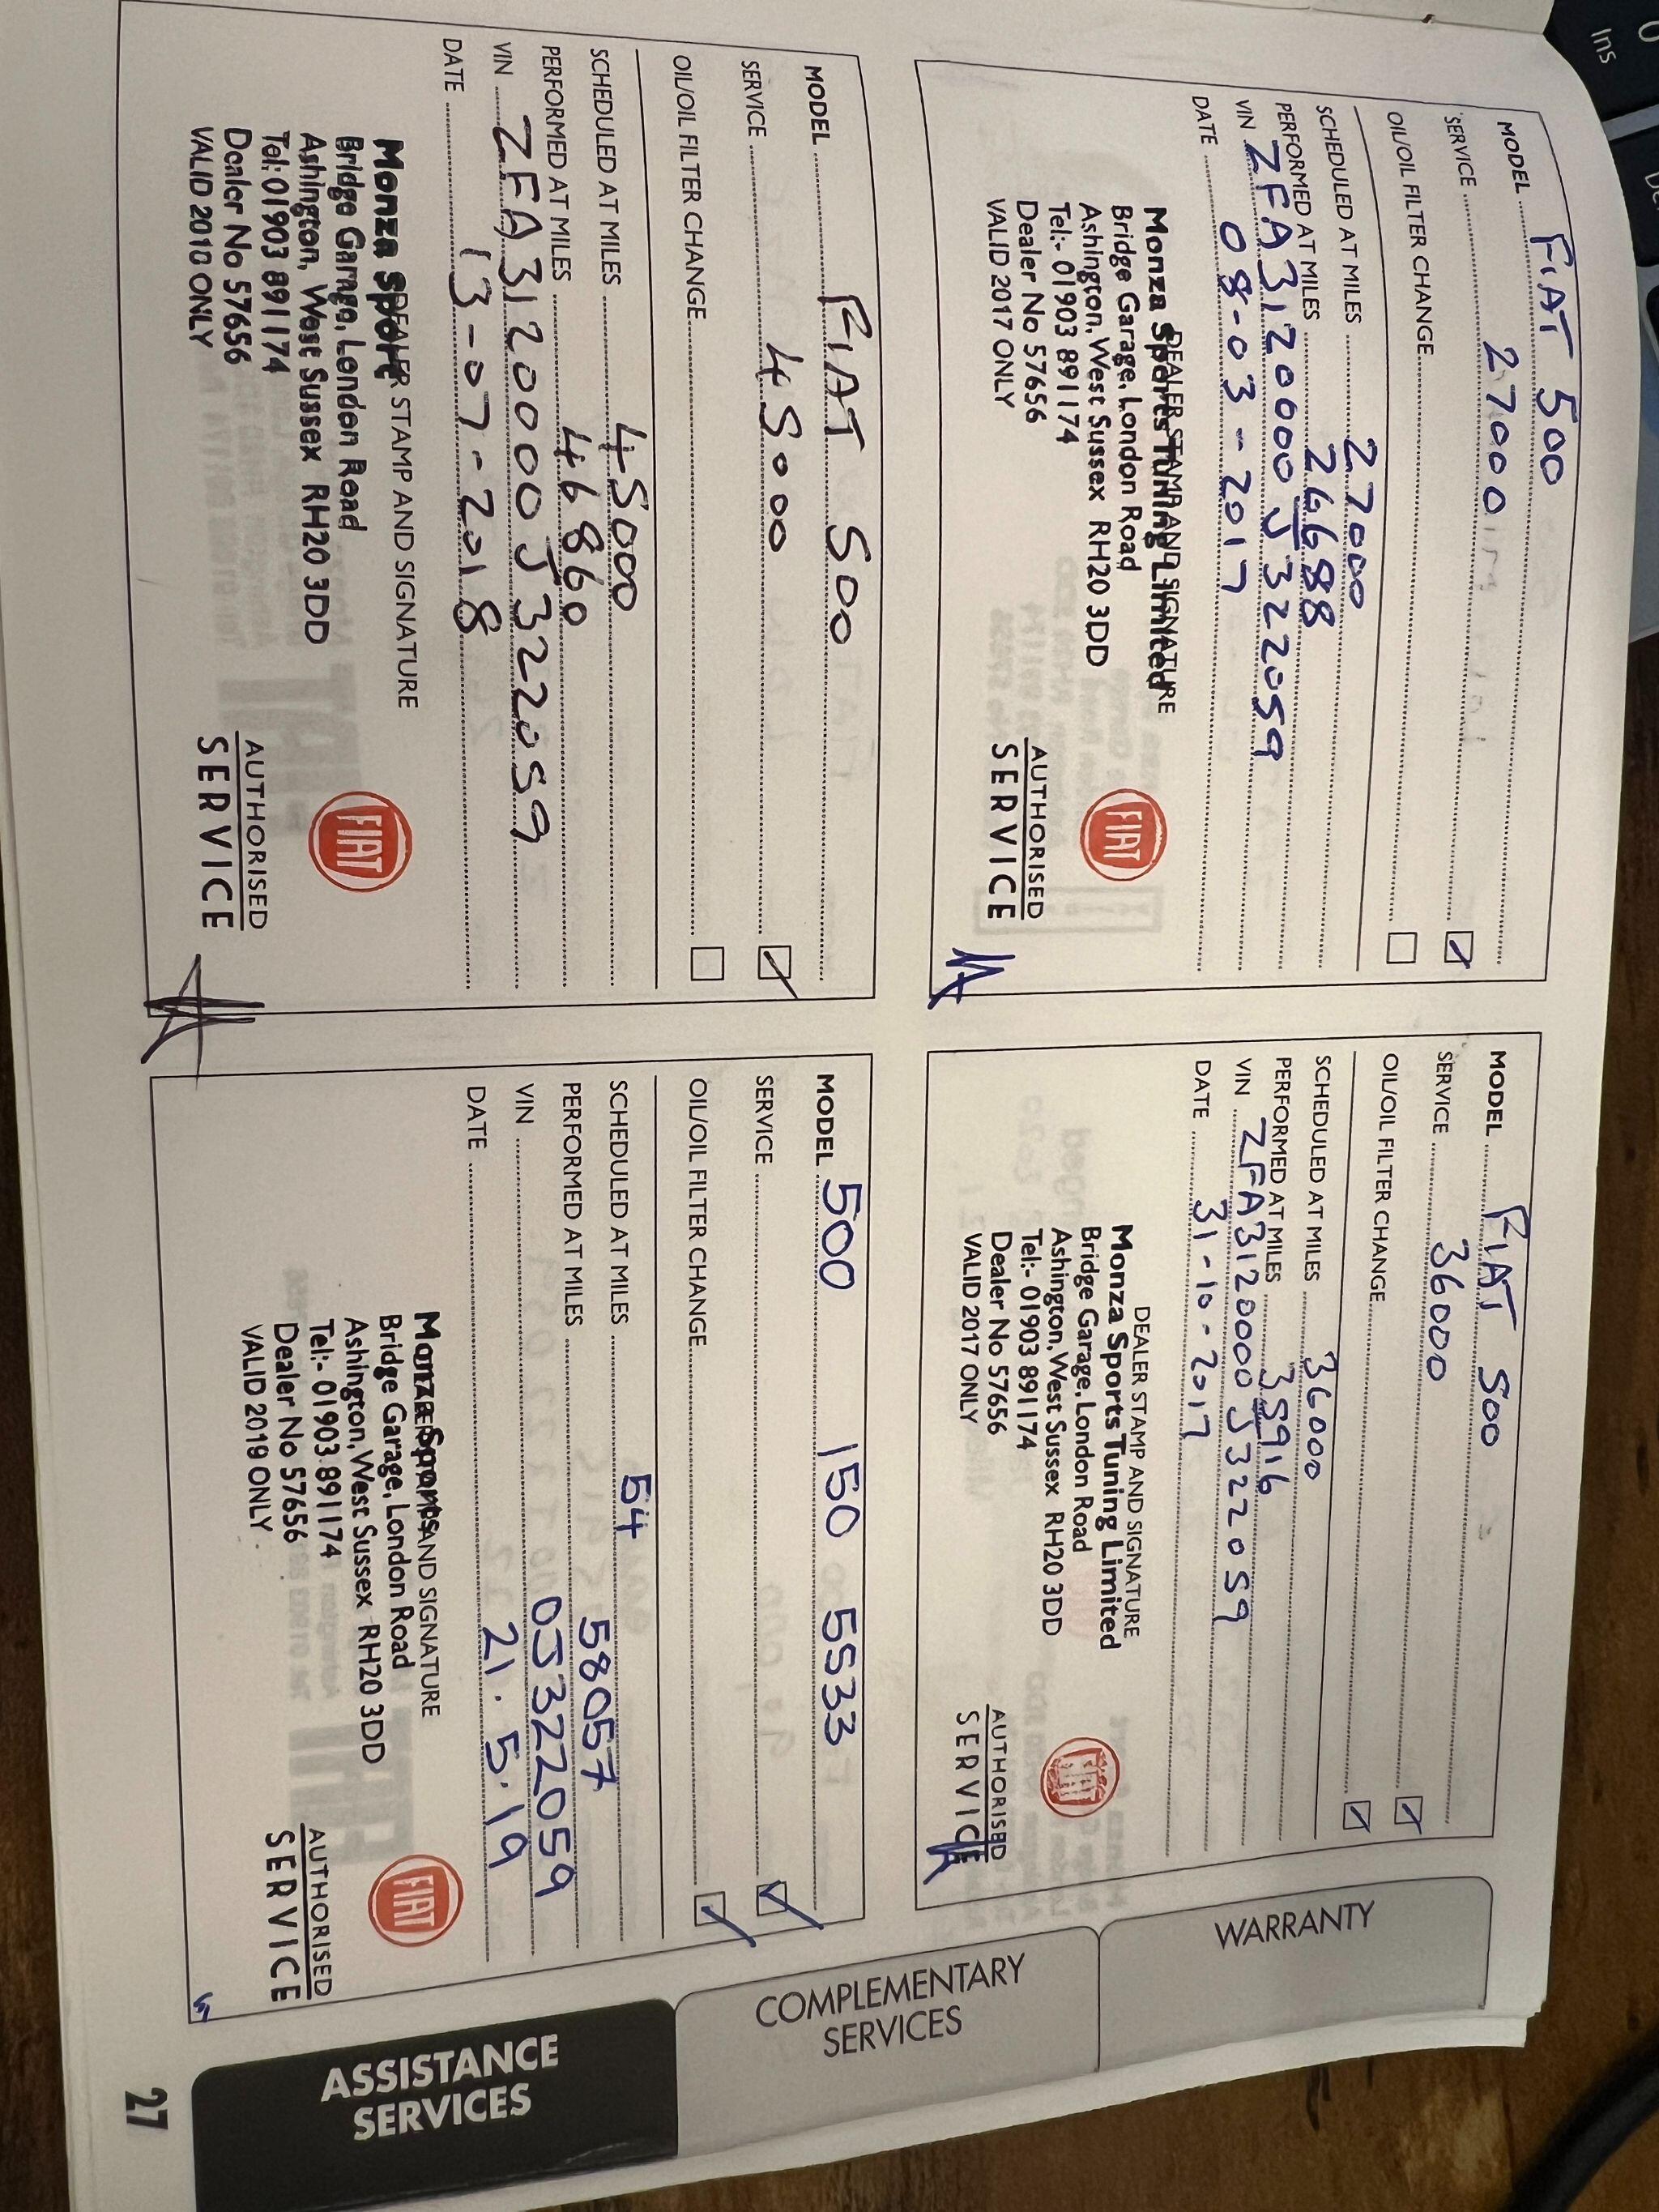 Ins
MODEL FIAT 500
SERVICE 27000
OIL/OIL FILTER CHANGE
SCHEDULED AT MILES 27000
PERFORMED AT MILES 26688
VIN ZFA3120000J322059
DATE 08-03-2017
DEALER STAMP AND SIGNATURE
Monza Sports Tuning Limited
Bridge Garage, London Road
Ashington, West Sussex RH20 3DD
Tel:- 01903 891174
Dealer No 57656
VALID 2017 ONLY
FIAT
AUTHORISED
SERVICE
MODEL FIAT 500
SERVICE 36000
OIL/OIL FILTER CHANGE
SCHEDULED AT MILES 36000
PERFORMED AT MILES 35916
VIN ZFA3120000J322059
DATE 31-10-2017
DEALER STAMP AND SIGNATURE
Monza Sports Tuning Limited
Bridge Garage, London Road
Ashington, West Sussex RH20 3DD
Tel:- 01903 891174
Dealer No 57656
VALID 2017 ONLY
FIAT
AUTHORISED
SERVICE
MODEL FIAT 500
SERVICE 45000
OIL/OIL FILTER CHANGE
SCHEDULED AT MILES 45000
PERFORMED AT MILES 46860
VIN ZFA3120000J322059
DATE 13-07-2018
DEALER STAMP AND SIGNATURE
Monza Sport
Bridge Garage, London Road
Ashington, West Sussex RH20 3DD
Tel: 01903 891174
Dealer No 57656
VALID 2018 ONLY
FIAT
AUTHORISED
SERVICE
MODEL 500 150 5533
SERVICE
OIL/OIL FILTER CHANGE
SCHEDULED AT MILES 54
PERFORMED AT MILES 58057
VIN 0J322059
DATE 21.5.19
AND SIGNATURE
Monza Sports
Bridge Garage, London Road
Ashington, West Sussex RH20 3DD
Tel:- 01903 891174
Dealer No 57656
VALID 2019 ONLY
FIAT
AUTHORISED
SERVICE
WARRANTY
COMPLEMENTARY
SERVICES
ASSISTANCE
SERVICES
27